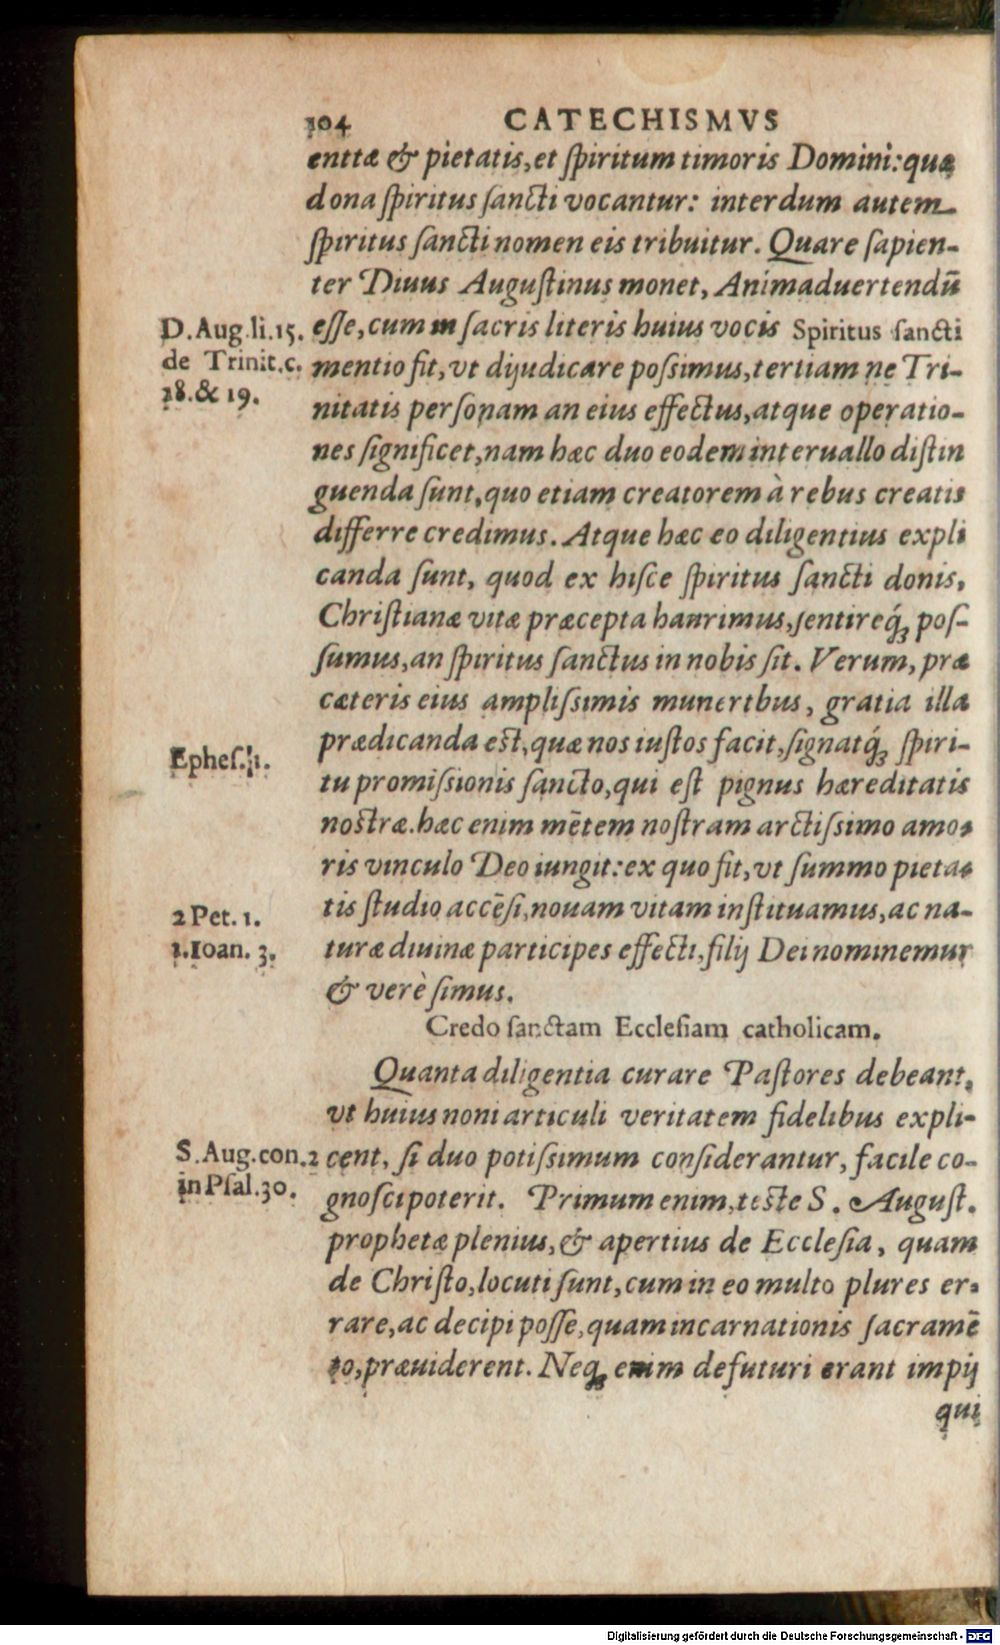 104 CATECHISMVS
entiæ & pietatis, et ſpiritum timoris Domini: quæ
dona ſpiritus ſancti vocantur: interdum autem
ſpiritus ſancti nomen eis tribuitur. Quare ſapien-
ter Diuus Auguſtinus monet, Animaduertendū
D. Aug. li. 15. eſſe, cum in ſacris literis huius vocis Spiritus ſancti
de Trinit. c. mentio fit, vt dijudicare poſsimus, tertiam ne Tri-
18. & 19. nitatis perſonam an eius effectus, atque operatio-
nes ſignificet, nam hæc duo eodem interuallo diſtin
guenda ſunt, quo etiam creatorem à rebus creatis
differre credimus. Atque hæc eo diligentius expli
canda ſunt, quod ex hiſce ſpiritus ſancti donis,
Chriſtianæ vitæ præcepta haurimus, ſentireq́; poſ-
ſumus, an ſpiritus ſanctus in nobis ſit. Verum, præ
cæteris eius ampliſsimis muneribus, gratia illa
Epheſ. 1. prædicanda eſt, quæ nos iuſtos facit, ſignatq́; ſpiri-
tu promiſsionis ſancto, qui eſt pignus hæreditatis
noſtræ. hæc enim mētem noſtram arctiſsimo amo-
ris vinculo Deo iungit: ex quo fit, vt ſummo pieta-
2 Pet. 1. tis ſtudio accēſi, nouam vitam inſtituamus, ac na-
1. Ioan. 3. turæ diuinæ participes effecti, filij Dei nominemur
& verè ſimus.
Credo ſanctam Eccleſiam catholicam.
Quanta diligentia curare Paſtores debeant,
vt huius noni articuli veritatem fidelibus expli-
S. Aug. con. 2 cent, ſi duo potiſsimum conſiderantur, facile co-
in Pſal. 30. gnoſci poterit. Primum enim, teſte S. Auguſt.
prophetæ plenius, & apertius de Eccleſia, quam
de Chriſto, locuti ſunt, cum in eo multo plures er-
rare, ac decipi poſſe, quam incarnationis ſacramē
to, præuiderent. Neq; enim defuturi erant impij
qui
Digitalisierung gefördert durch die Deutsche Forschungsgemeinschaft - DFG